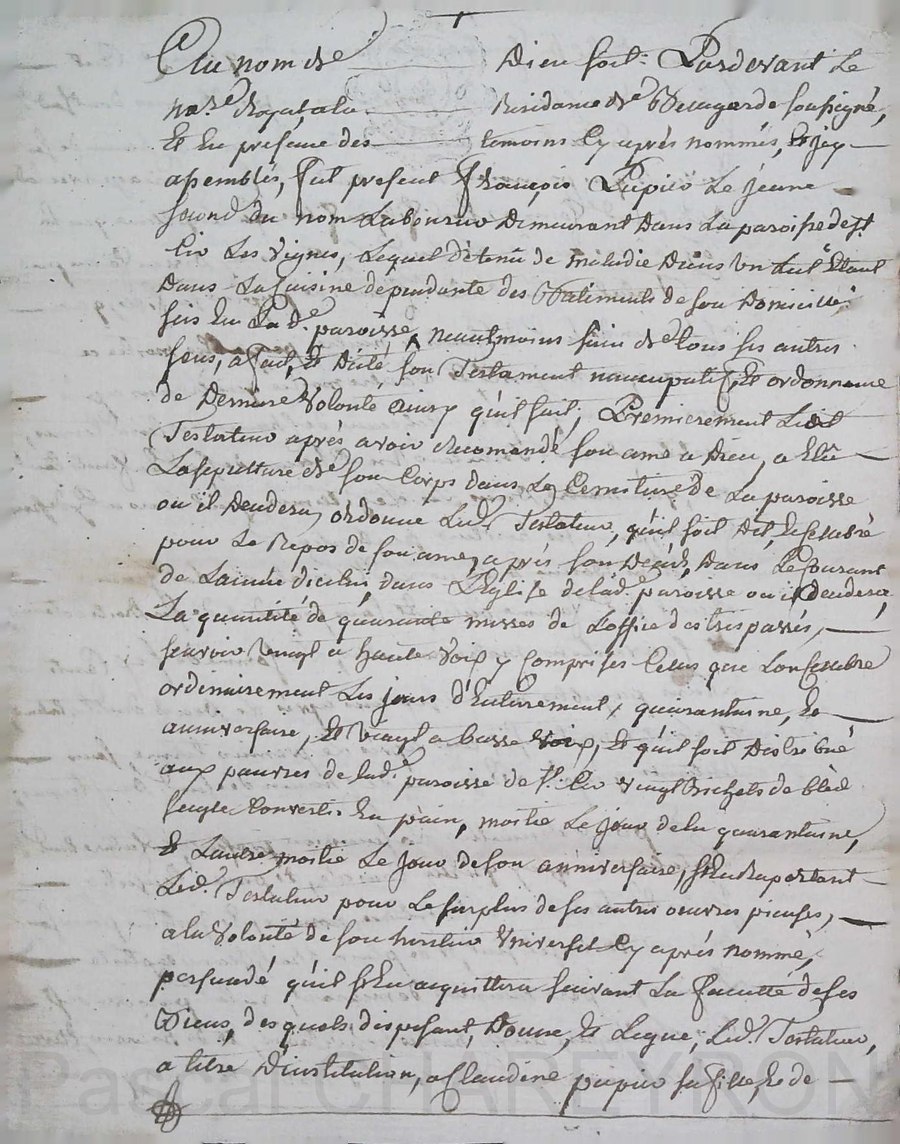 Au nom de Dieu soit. Pardevant Le
nore. Royal a la Residance de Beaugarde soussigné,
Et En presence des temoins Cy après nommés, Et icy
assemblés, fut present françois Pupier Le jeune
second du nom Laboureur Demeurant Dans La paroisse de st.
Cir Les Vignes, Lequel détenû de maladie Dans Un Lict Etant
Dans La Cuisine dependante des Batiments de son Domicille
scis En Lad.e paroisse, neantmoins sain de tous ses autres
sens, a fait, Et Dicté son Testament nuncupatif, Et ordonnance
de Derniere Volonté Ainsy qu'il suit; Premierement Ledit
Testateur après avoir Recomandé son ame a Dieu, a Elû
La sepulture de son Corps dans Le Cemitiere De La paroisse
ou il Decedera, ordonne Led. Testateur, qu'il soit Dit, Et Celebré
pour Le Repos de son ame, après son Décéd, Dans Le Courant
de L'année d'icelui, dans L'Eglise de lad.e paroisse ou il Decedera,
La quantité de quarante messes de L'office des trespassés,
sçavoir Vingt a haute Voix y Comprises Celles que L'on Celebre
ordinairement Les jours d'Enterrement, quarantaine, Et
anniversaire, Et Vingt a basse Voix, Et qu'il soit Distribué
aux pauvres de lad.e paroisse de st. Cir Vingt Bichets de bled
seigle Convertis En pain, moitié Le jour de la quarantaine,
Et L'autre moitié Le jour de son anniversaire, s'En Raportant
Led. Testateur pour Le surplus de ses autres oeuvres pieuses,
a la Volonté de son heritier Universel Cy après nommé,
persuadé qu'il s'En acquittera suivant La faculté de ses
Biens, desquels disposant, Donne, Et Legue, Led. Testateur,
a titre D'institution, a Claudine pupier sa fille, Et de
Pascal CHAREYRON